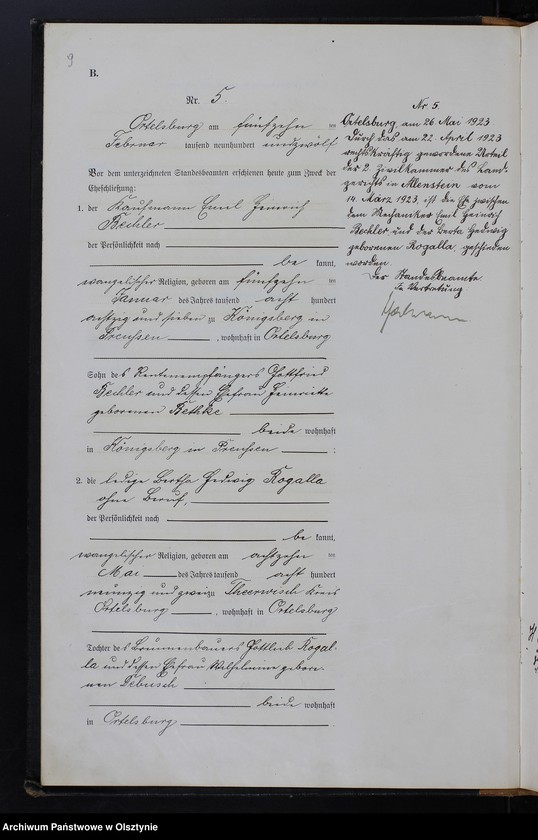 9
B.
Nr. 5.
Ortelsburg am fünfzehn ten
Februar tausend neunhundert undzwölf
Vor dem unterzeichneten Standesbeamten erschienen heute zum Zweck der
Eheschließung:
1. der Kaufmann Emil Heinrich
Bechler
der Persönlichkeit nach
be kannt,
evangelischer Religion, geboren am fünfzehn ten
Januar des Jahres tausend acht hundert
achtzig und sieben zu Königsberg in
Preussen, wohnhaft in Ortelsburg
Sohn des Rentenempfängers Gottfried
Bechler und dessen Ehefrau Heinriette
geborenen Bethke
beide wohnhaft
in Königsberg in Preussen;
2. die ledige Bertha Hedwig Rogalla
ohne Beruf,
der Persönlichkeit nach
be kannt,
evangelischer Religion, geboren am achtzehn ten
Mai des Jahres tausend acht hundert
neunzig und zwei zu Theerwisch Kreis
Ortelsburg, wohnhaft in Ortelsburg
Tochter des Brunnenbauers Gottlieb Rogal-
la und dessen Ehefrau Wilhelmine gebore-
nen
beide wohnhaft
in Ortelsburg.
Nr. 5.
Ortelsburg am 26. Mai 1923
Durch das am 22. April 1923
rechtskräftig gewordene Urteil
der 2 Zivilkammer des Land-
gerichts in Allenstein vom
14. März 1923, ist die Ehe zwischen
dem Mechaniker Emil Heinrich
Bechler und der Berta Hedwig
geborenen Rogalla, geschieden
worden.
Der Standesbeamte
In Vertretung
Archiwum Państwowe w Olsztynie